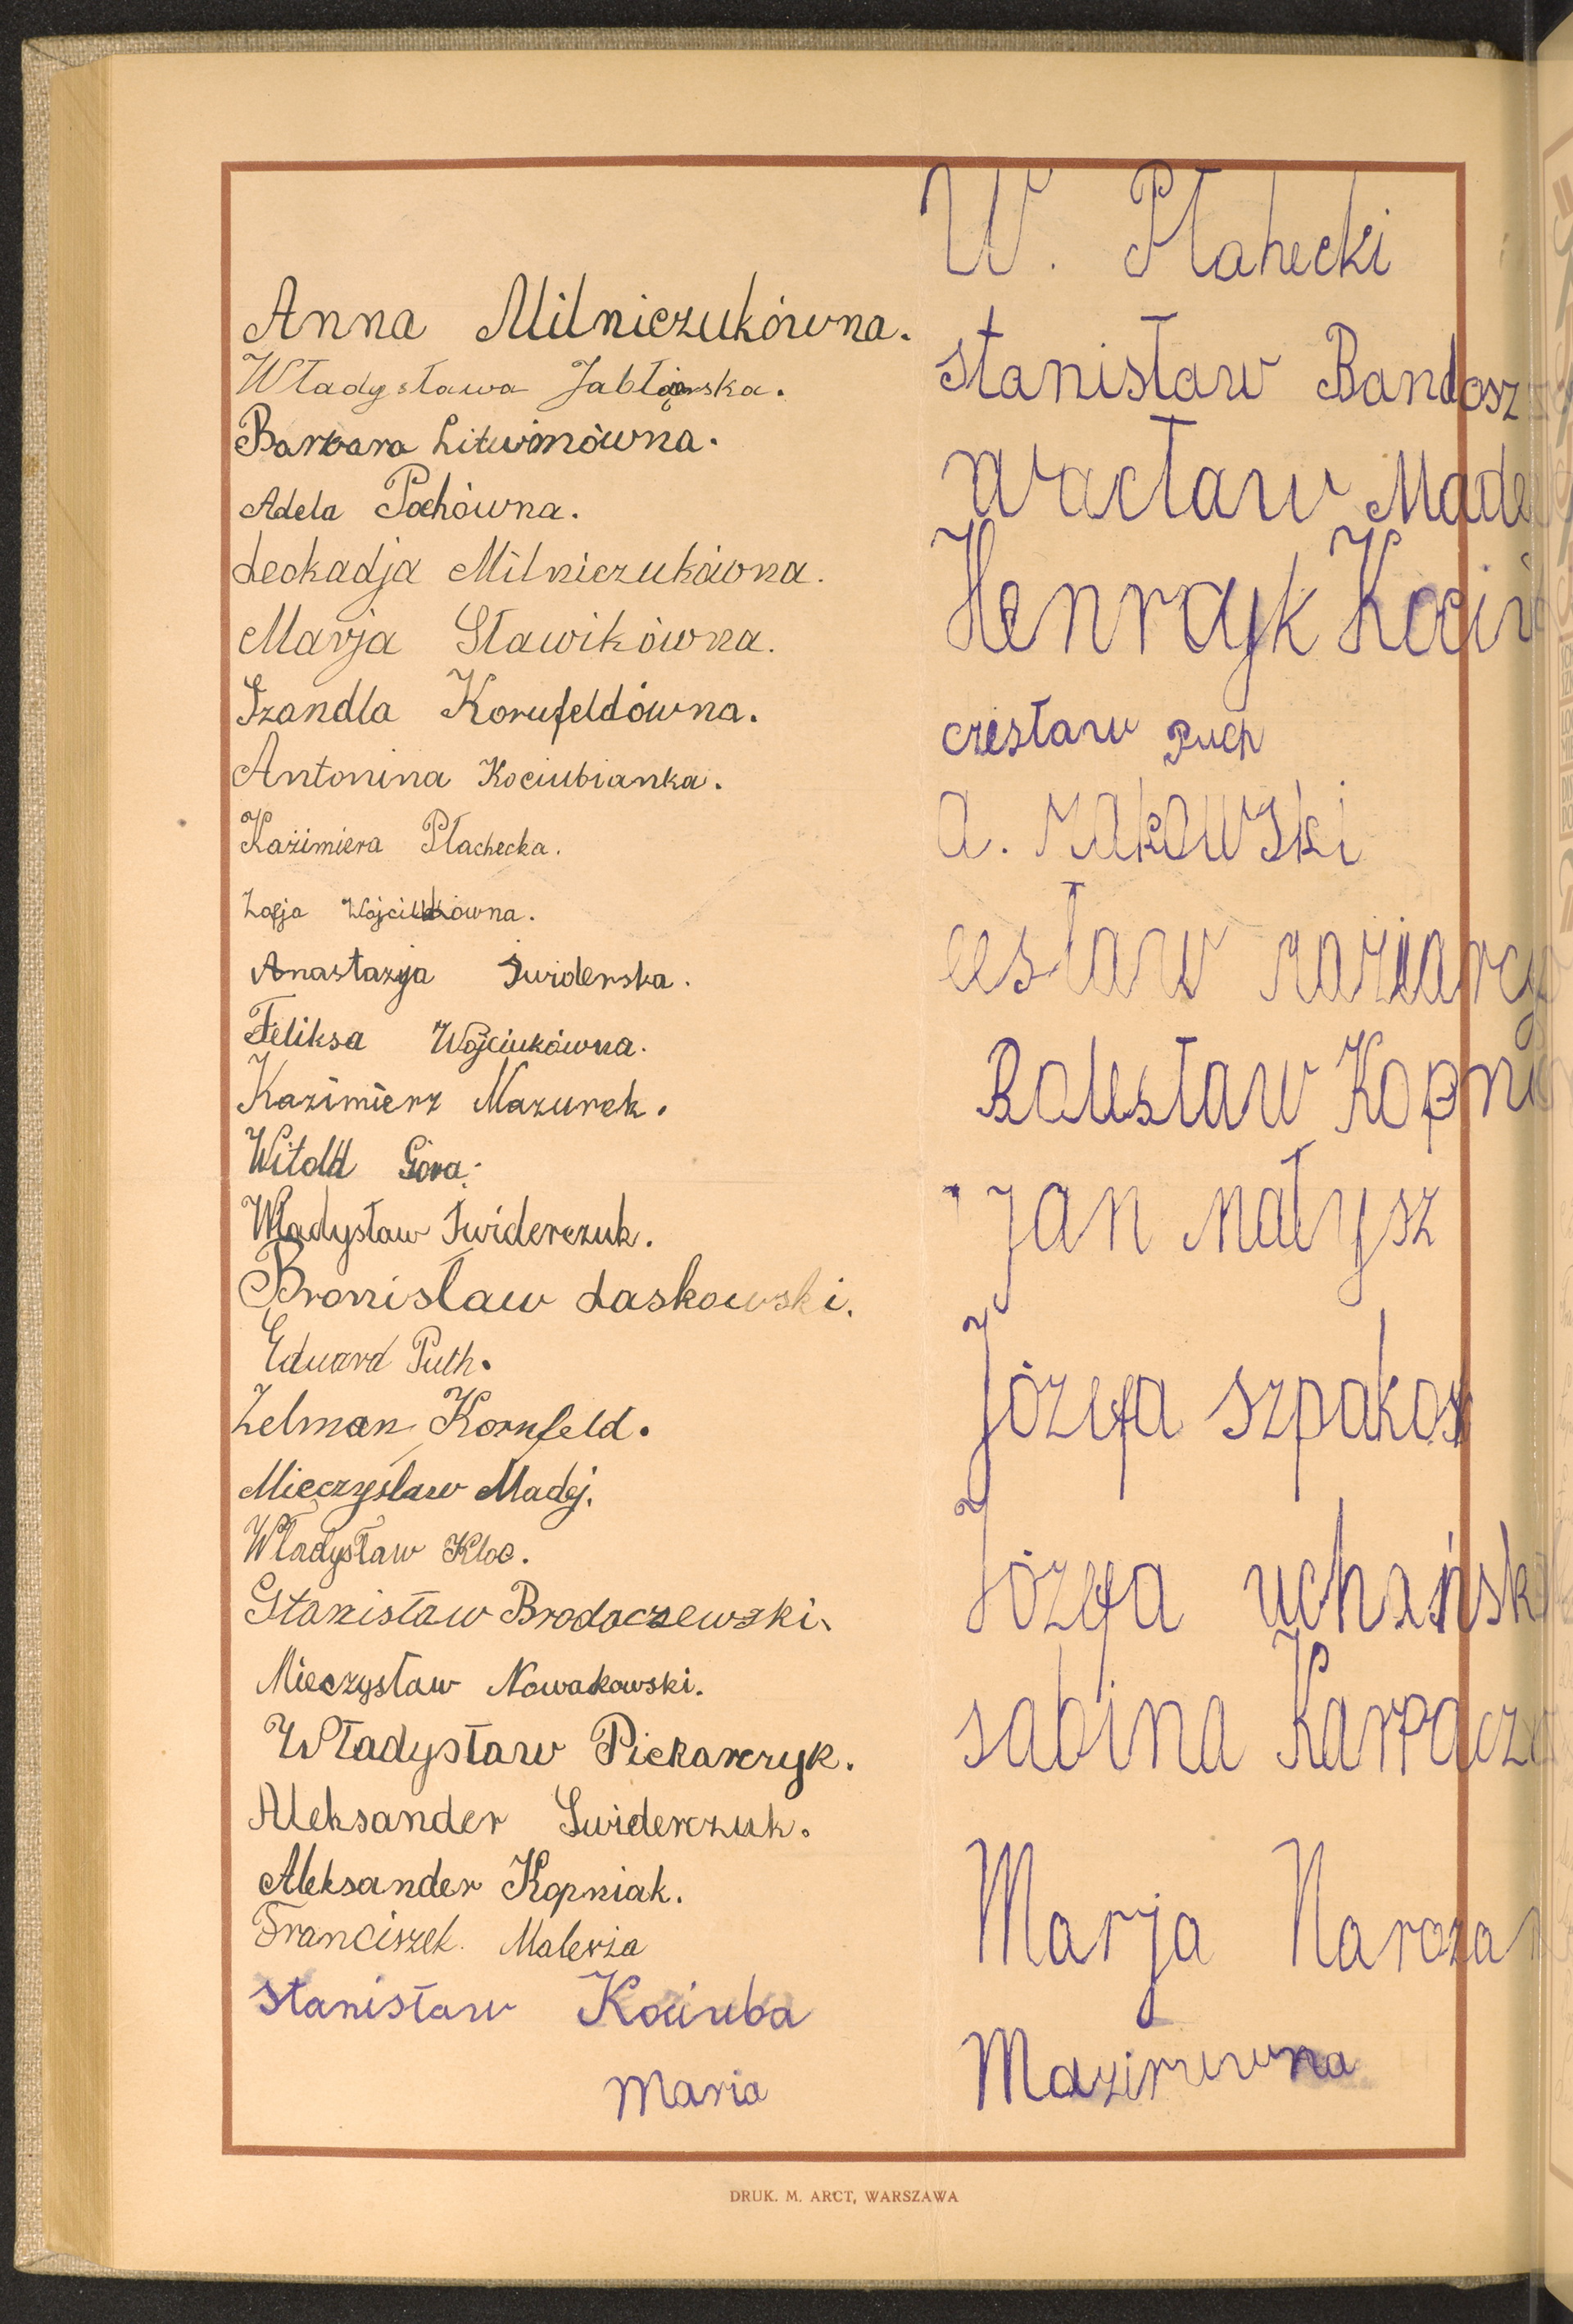 Anna Milniczukówna.
Władysława Jabłońska.
Barbara Litwinówna.
Adela Pochówna.
Leokadja Milniczukówna.
Marja Sławikówna.
Szandla Kornfeldówna.
Antonina Kociubianka.
Kazimiera Płachecka.
Zofja Wójcikówna.
Anastazja Świderska.
Feliksa Wójciukówna.
Kazimierz Mazurek.
Witold Góra.
Władysław Świderczuk.
Bronisław Laskowski.
Eduard Puth.
Zelman Kornfeld.
Mieczysław Madej.
Władysław Kloc.
Stanisław Brodaczewski.
Mieczysław Nowakowski.
Władysław Piekarczyk.
Aleksander Świderczuk.
Aleksander Kopniak.
Franciszek Maleńza
Stanisław Kociuba
Maria
W. Płahecki
Stanisław Bandosz
Wacław Made
Henryk Kociu
Czesław Puch
a. Makowski
Bolesław Kopni
Jan Małysz
Józefa Szpakos
Józefa uchańsk
Sabina Karpacz
Marja
Mazirowna
DRUK. M. ARCT, WARSZAWA